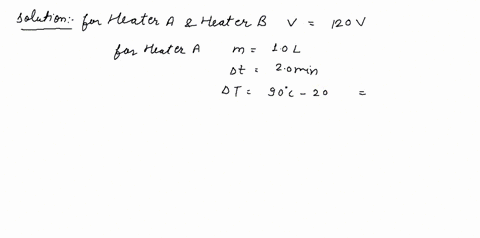 Solution:- for Heater A & Heater B V = 120V
for Heater A m = 1.0 L
Δt = 2.0min
ΔT = 90°c - 20 =